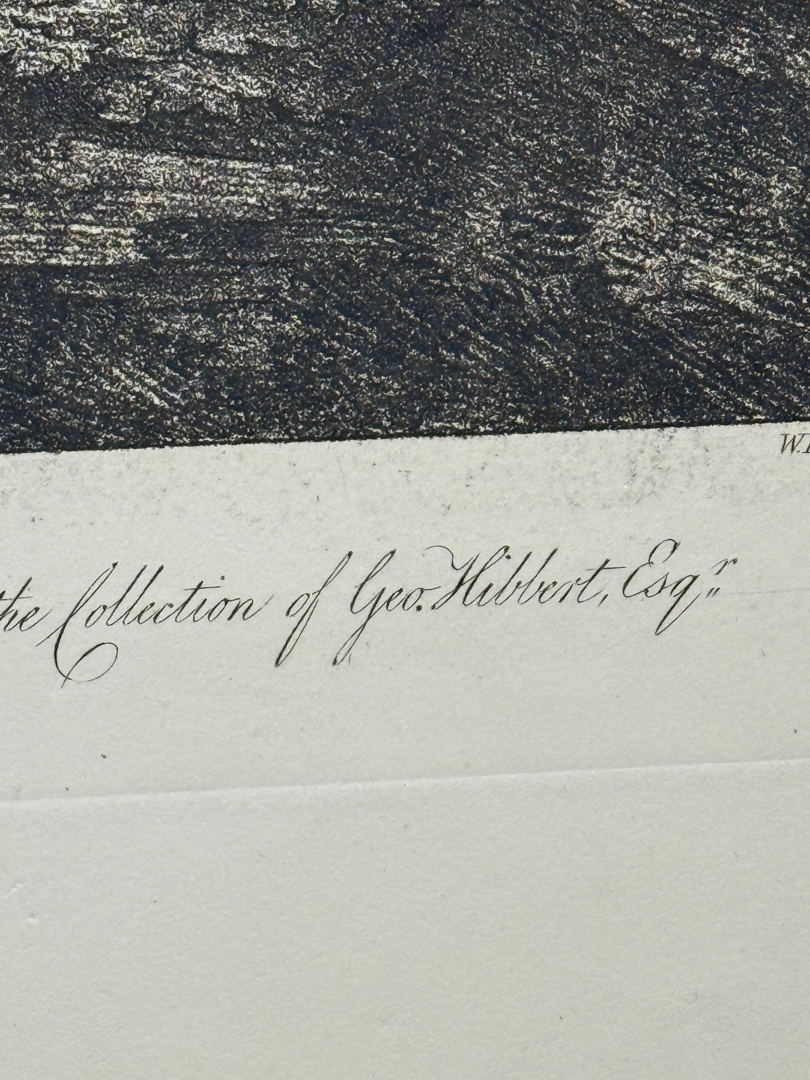 W.
the Collection of Geo. Hibbert, Esqr.